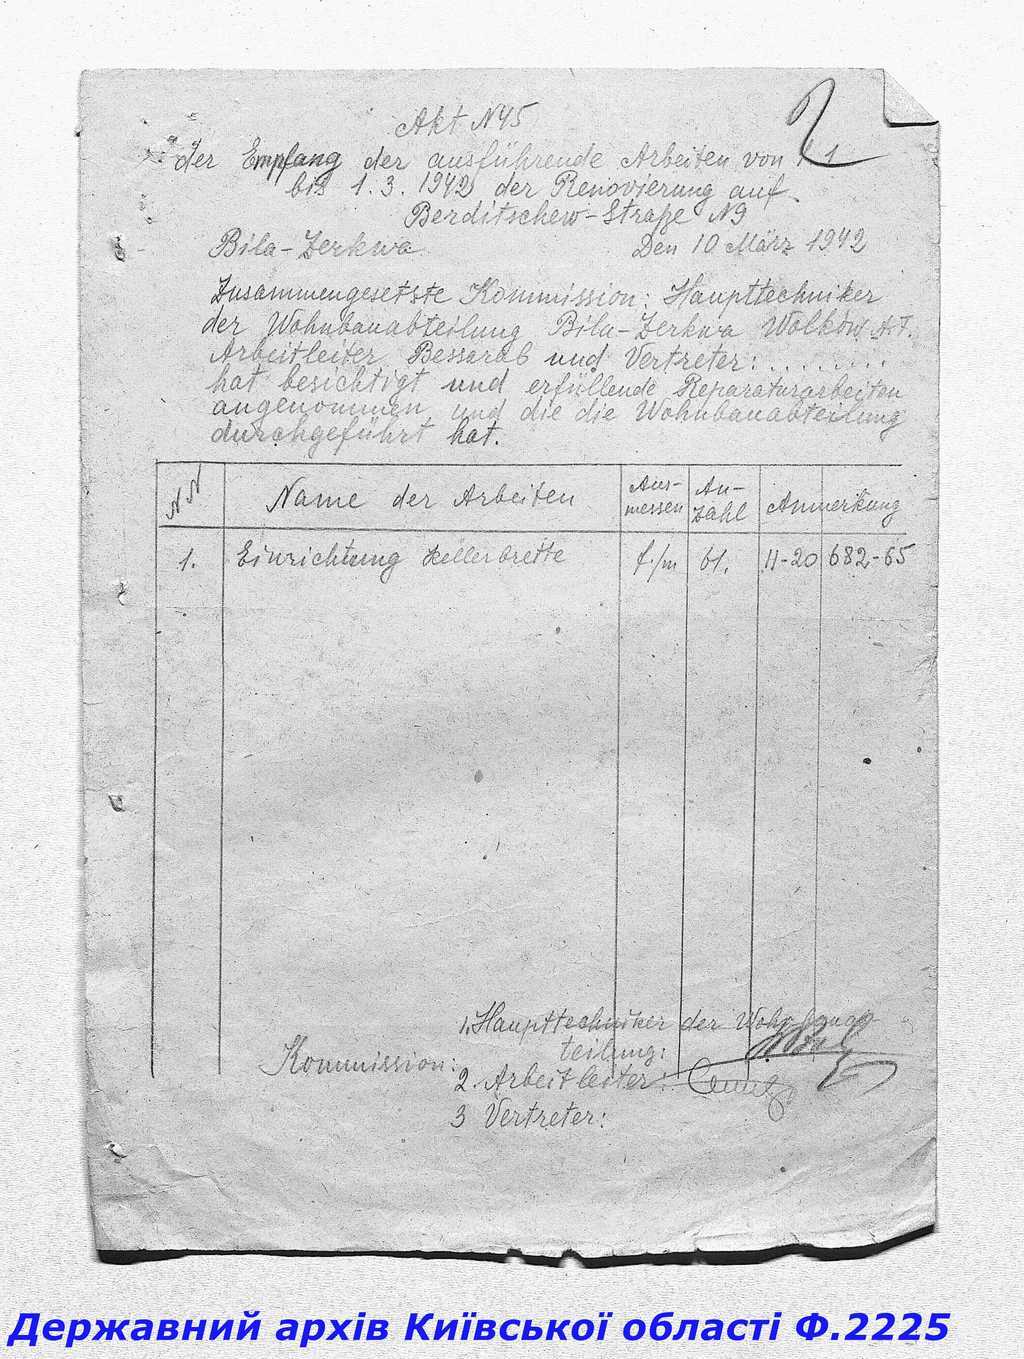 2
Akt N45
der Empfang der ausführende Arbeiten von 1
bis 1.3.1942 der Renovierung auf
Berditschew-Straße N9
Bila-Zerkwa Den 10 März 1942
Zusammengesetste Kommission: Haupttechniker
der Wohnbauabteilung Bila-Zerkwa Wolkow
Arbeitleiter Bessarab und Vertreter: ........
hat besichtigt und erfüllende Reparaturarbeiten
angenommen und die die Wohnbauabteilung
durchgeführt hat.
NN Name der Arbeiten Aus-messen An-zahl Anmerkung
1. Einrichtung Kellerbrette f./m 61. 11-20 682-65
Kommission: 1. Haupttechniker der Wohnbauab-
teilung:
2. Arbeitleiter:
3 Vertreter:
Державний архів Київської області Ф.2225